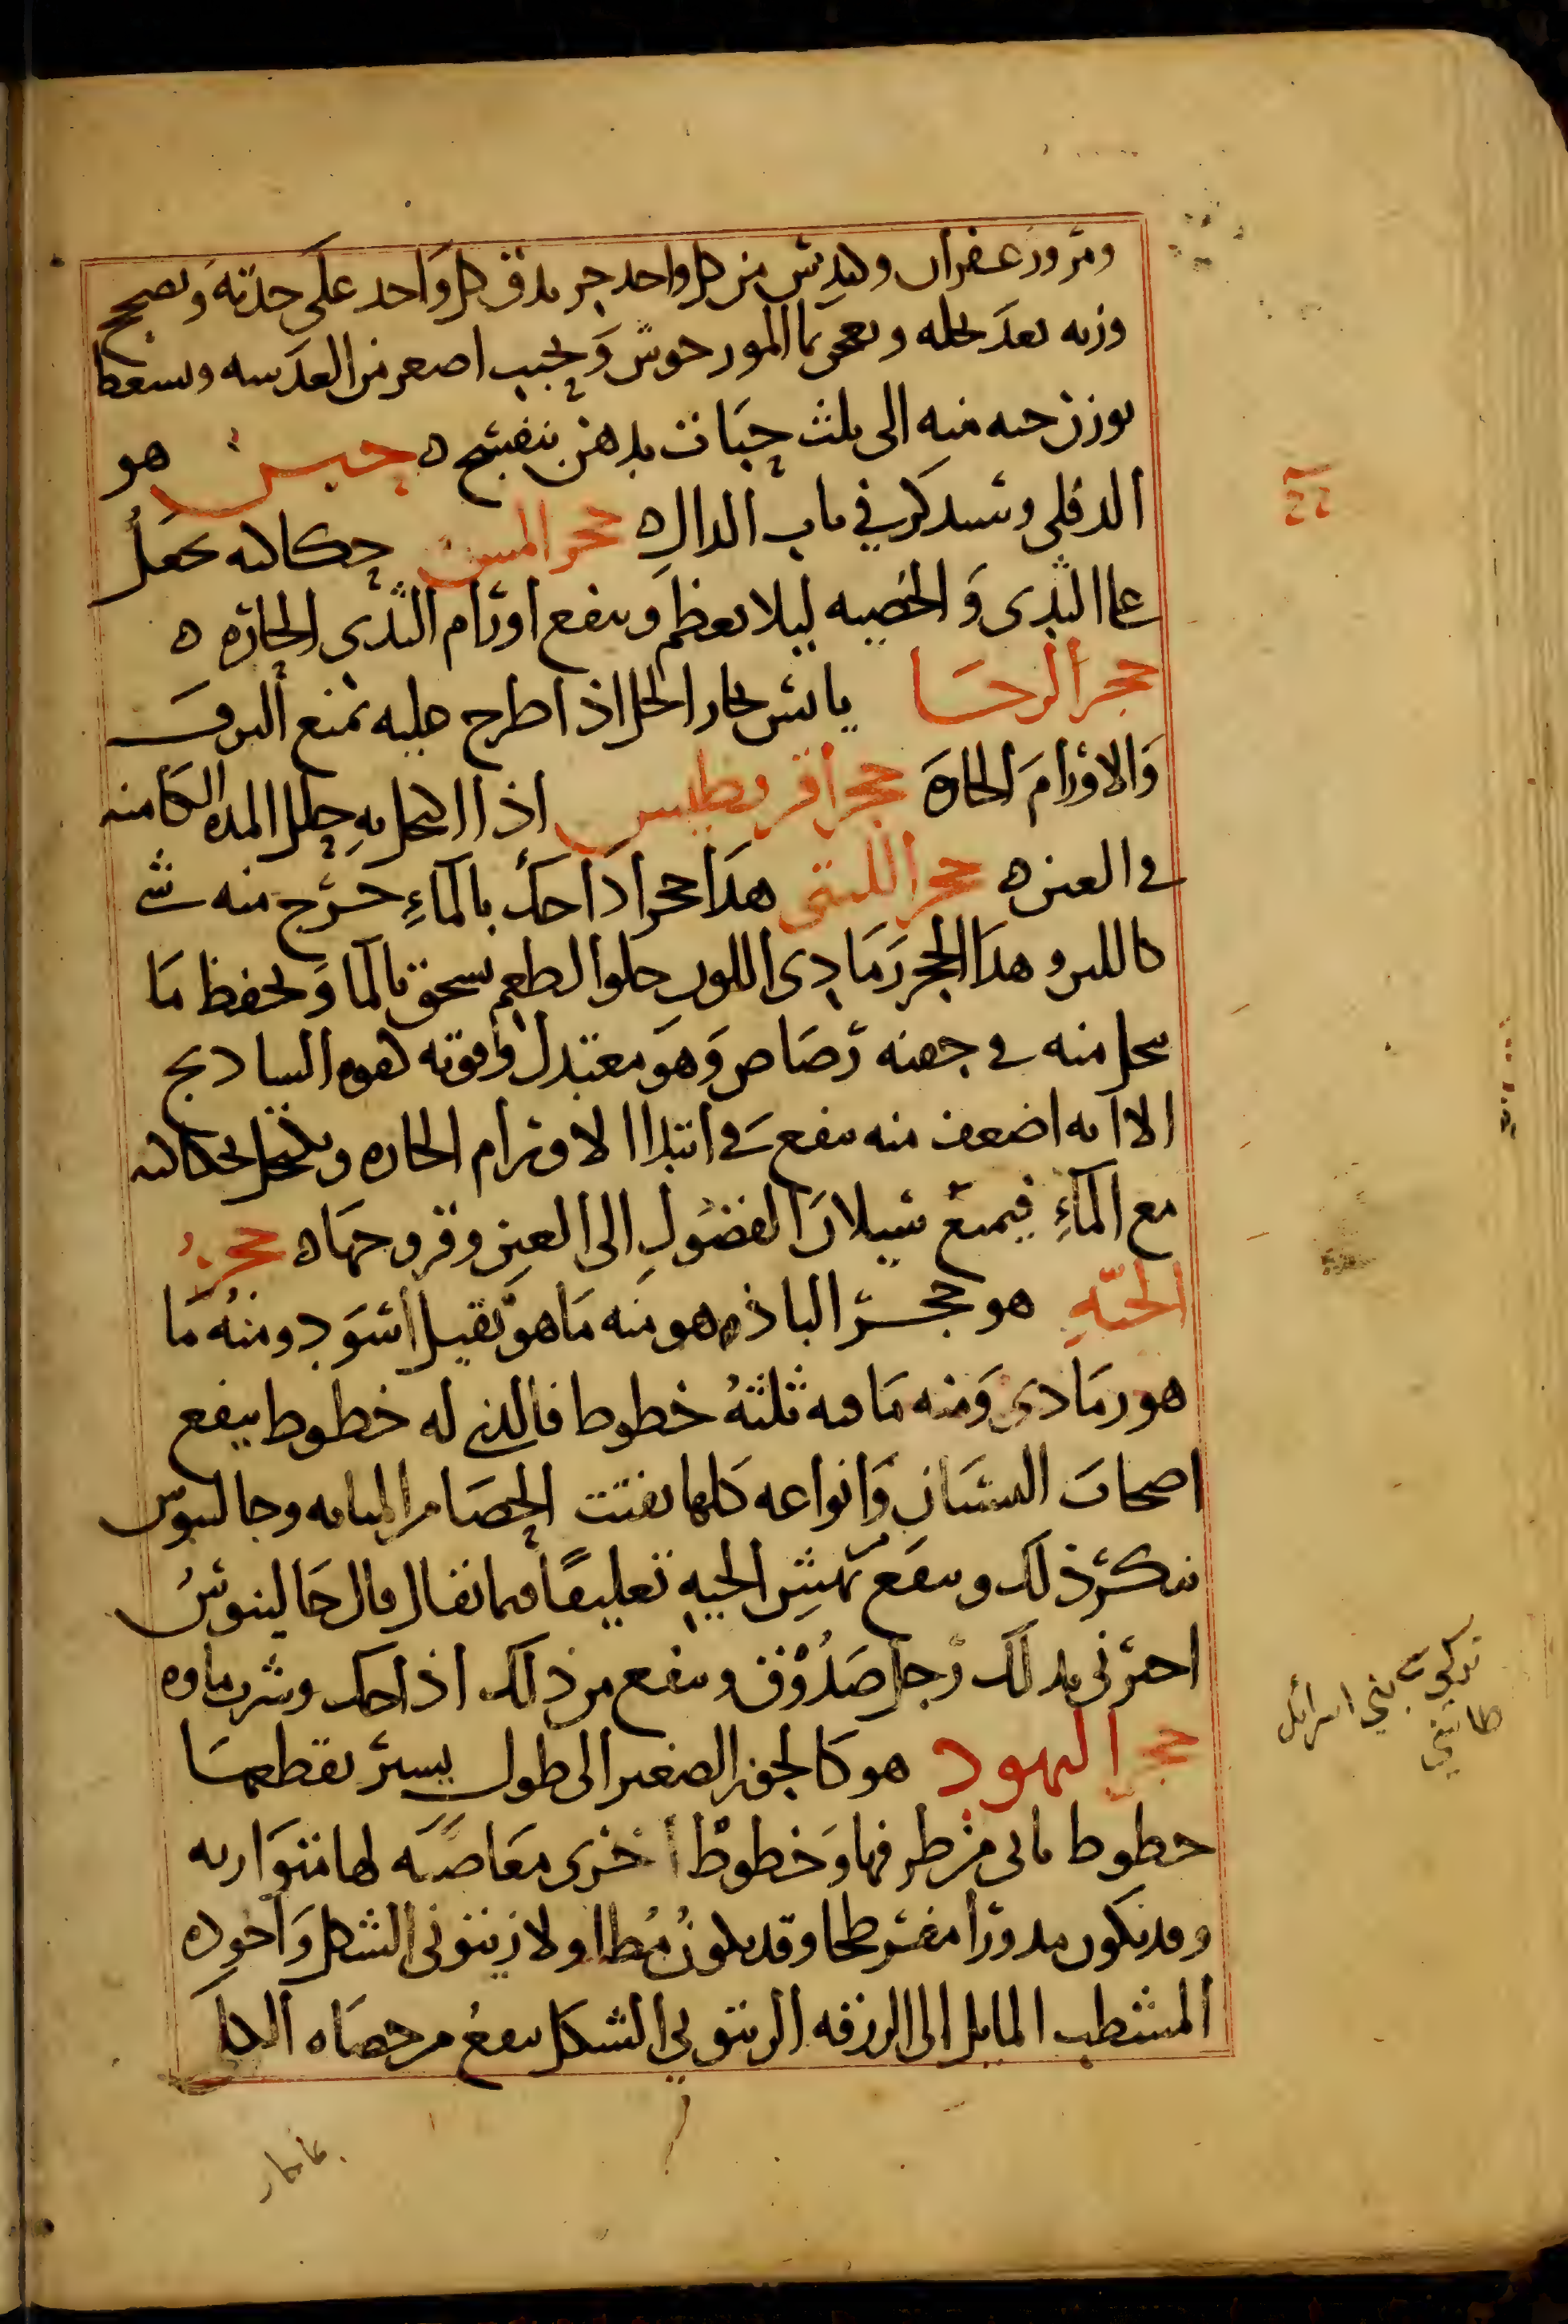 ومر وزعفران وكندس من كل واحد جز يدق كل واحد على حدته ويصحح
وزنه بعد نخله ويعجن بما المورحوش ويحبب اصغر من العدسه ويسعط
بوزن حبه منه الى ثلث حبات بدهن بنفسج ه حبس هو
الدفلى وسنذكر في باب الدال ه حجر المسن حكاكته تجعل
على الثدى والخصيه ليلا يعظم وينفع اورام الثدى الحاره ه
حجر الرحا يابس بخار الخل اذا طرح عليه يمنع النزف
والاورام الحاره حجر افريطيس اذا اكتحل به حلل المده الكامنه
في العين ه حجر اللبنى هذا حجر اذا حك بالماء خرج منه شي
كاللبن وهذا الحجر رمادى اللون حلو الطعم يسحق بالما ويحفظ ما
ينحل منه في حقنه رصاص وهو معتدل وقوته كقوه السادنج
الا انه اضعف منه ينفع في ابتدا الاورام الحاره ويكتحل بحكاكته
مع الماء فيمنع سيلان الفضول الى العين وقروحها ه حجر
الحيه هو حجر الباذهر منه ما هو ثقيل اسود ومنه ما
هو رمادى ومنه ما فيه ثلثه خطوط فالذى له خطوط ينفع
اصحاب النسيان وانواعه كلها تفتت الحصا من المثانه وجالينوس
ينكر ذلك وينفع نهش الحيه تعليقا فيما يقال قال جالينوس
اخبرنى بذلك رجل صدوق وينفع من ذلك اذا حك وشرب ماوه
حجر اليهود هو كالجوز الصغير الى طول يسير يقطعها
خطوط تاتى من طرفها وخطوط اخرى معارضه لها متوازيه
وقد يكون مدورا مفرطحا وقد يكون مطاولا زيتونى الشكل واجوده
المشطب المايل الى الزرقه الزيتونى الشكل ينفع من حصاه الكلا
بني اسرائل